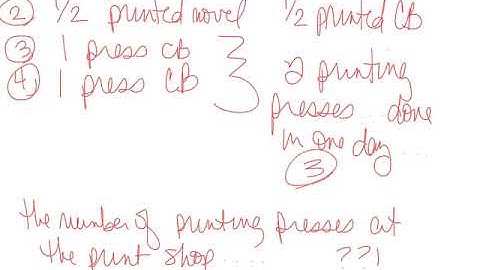 ② 1/2 printed novel 1/2 printed CB
③ 1 press cb
④ 1 press CB
2 printing
presses... done
in one day...
③
the number of printing presses at
the print shop.... ??!